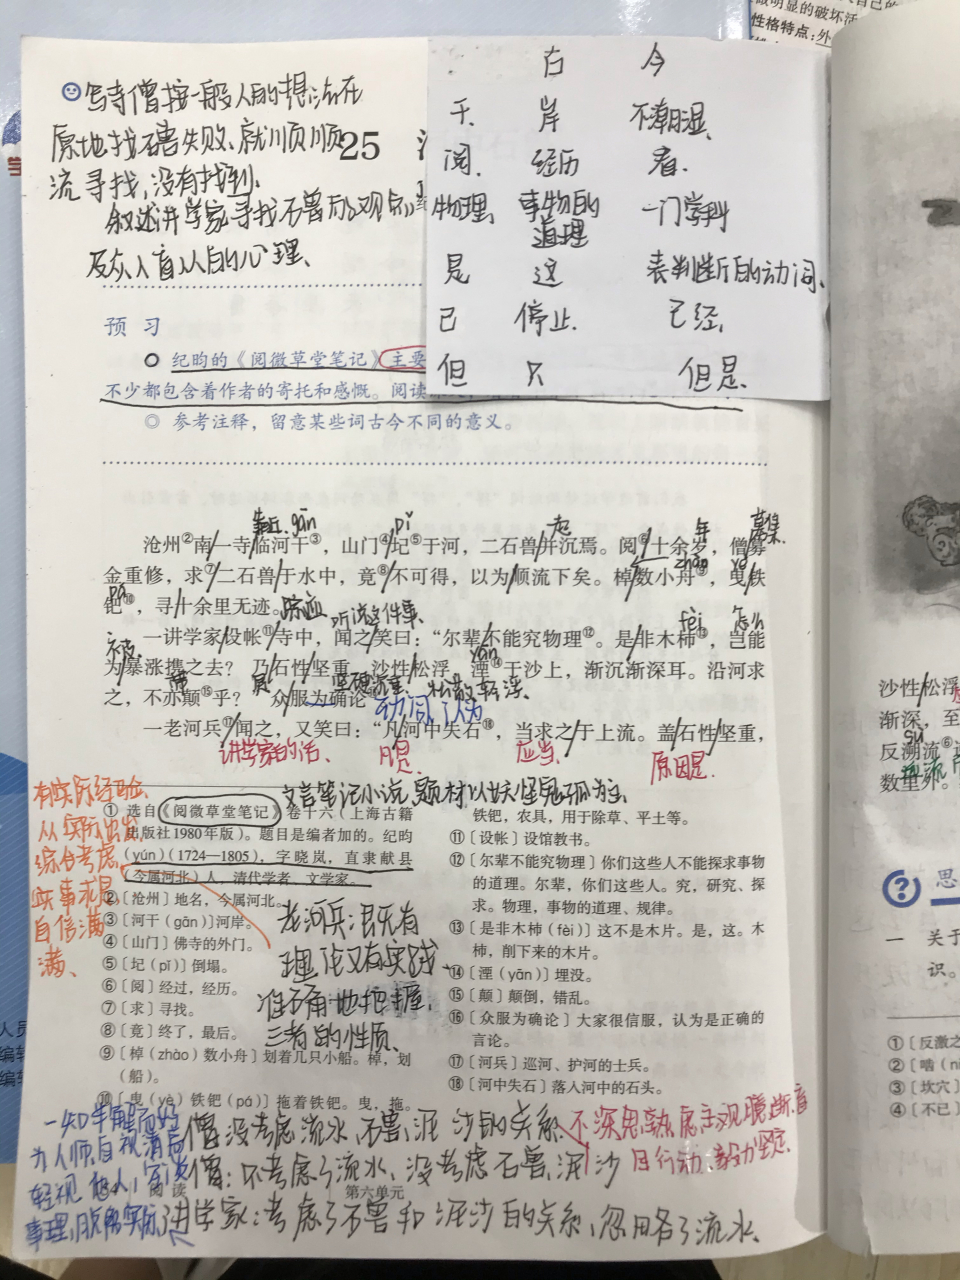 写寺僧按一般人的想法在
原地找石兽失败、就顺
流寻找,没有找到.
叙述讲学家寻找石兽的观点
及众人盲从的心理、
25
古 今
干. 岸 不潮湿、
阅. 经历 看.
物理、 事物的道理 一门学科
是 这 表判断的动词、
已 停止. 已经、
但 只 但是、
预 习
纪昀的《阅微草堂笔记》主要
不少都包含着作者的寄托和感慨。阅读
◎ 参考注释，留意某些词古今不同的意义。
靠近 gān pǐ 起 年 募集
沧州②南一寺临河干③，山门④圮⑤于河，二石兽并沉焉。阅⑥十余岁，僧募
zhào yè
金重修，求⑦二石兽于水中，竟⑧不可得，以为顺流下矣。棹数小舟⑨，曳铁
pá
钯⑩，寻十余里无迹。 踪迹 听说这件事、 fèi 怎么
一讲学家设帐⑪寺中，闻之笑曰：“尔辈不能究物理⑫。是非木杮⑬，岂能
被 yān
为暴涨携之去？乃石性坚重，沙性松浮，湮⑭于沙上，渐沉渐深耳。沿河求
之，不亦颠⑮乎？”众服为确论
坚硬沉重、 松散轻浮、
动词,认为
一老河兵⑰闻之，又笑曰：“凡河中失石⑱，当求之于上流。盖石性坚重，
讲学家的话、 凡是、 应当、 原因是.
文言笔记小说,题材以妖怪鬼狐为主、
有实际经验、
从实际出发
综合考虑
实事求是
自信满
满、
① 选自《阅微草堂笔记》卷十六（上海古籍
出版社1980年版）。题目是编者加的。纪昀
(yún)(1724—1805)，字晓岚，直隶献县
（今属河北）人，清代学者、文学家。
②〔沧州〕地名，今属河北。
③〔河干（gān）〕河岸。
④〔山门〕佛寺的外门。
⑤〔圮（pǐ）〕倒塌。
⑥〔阅〕经过，经历。
⑦〔求〕寻找。
⑧〔竟〕终了，最后。
⑨〔棹（zhào）数小舟〕划着几只小船。棹，划
（船）。
⑩〔曳（yè）铁钯（pá）〕拖着铁钯。曳，拖。
老河兵:既有
理论又有实践、
准确地把握
三者的性质、
铁钯，农具，用于除草、平土等。
⑪〔设帐〕设馆教书。
⑫〔尔辈不能究物理〕你们这些人不能探求事物
的道理。尔辈，你们这些人。究，研究、探
求。物理，事物的道理、规律。
⑬〔是非木杮（fèi）〕这不是木片。是，这。木
杮，削下来的木片。
⑭〔湮（yān）〕埋没。
⑮〔颠〕颠倒，错乱。
⑯〔众服为确论〕大家很信服，认为是正确的
言论。
⑰〔河兵〕巡河、护河的士兵。
⑱〔河中失石〕落入河中的石头。
一知半解而好
为人师自视清高
轻视他人,空谈
事理,脱离实际、
僧没考虑流水、石兽、泥沙的关系、
不深思熟虑主观臆断盲目行动、毅力坚定.
僧:不考虑了流水、没考虑石兽、泥沙
讲学家:考虑了石兽和泥沙的关系,忽略了流水、
阅 读 第六单元
沙性松浮
渐深，至
sù
反溯流⑥
数里外。
思
一 关于
识。
①〔反激之
②〔啮（ni
③〔坎穴〕
④〔不已〕
性格特点:外